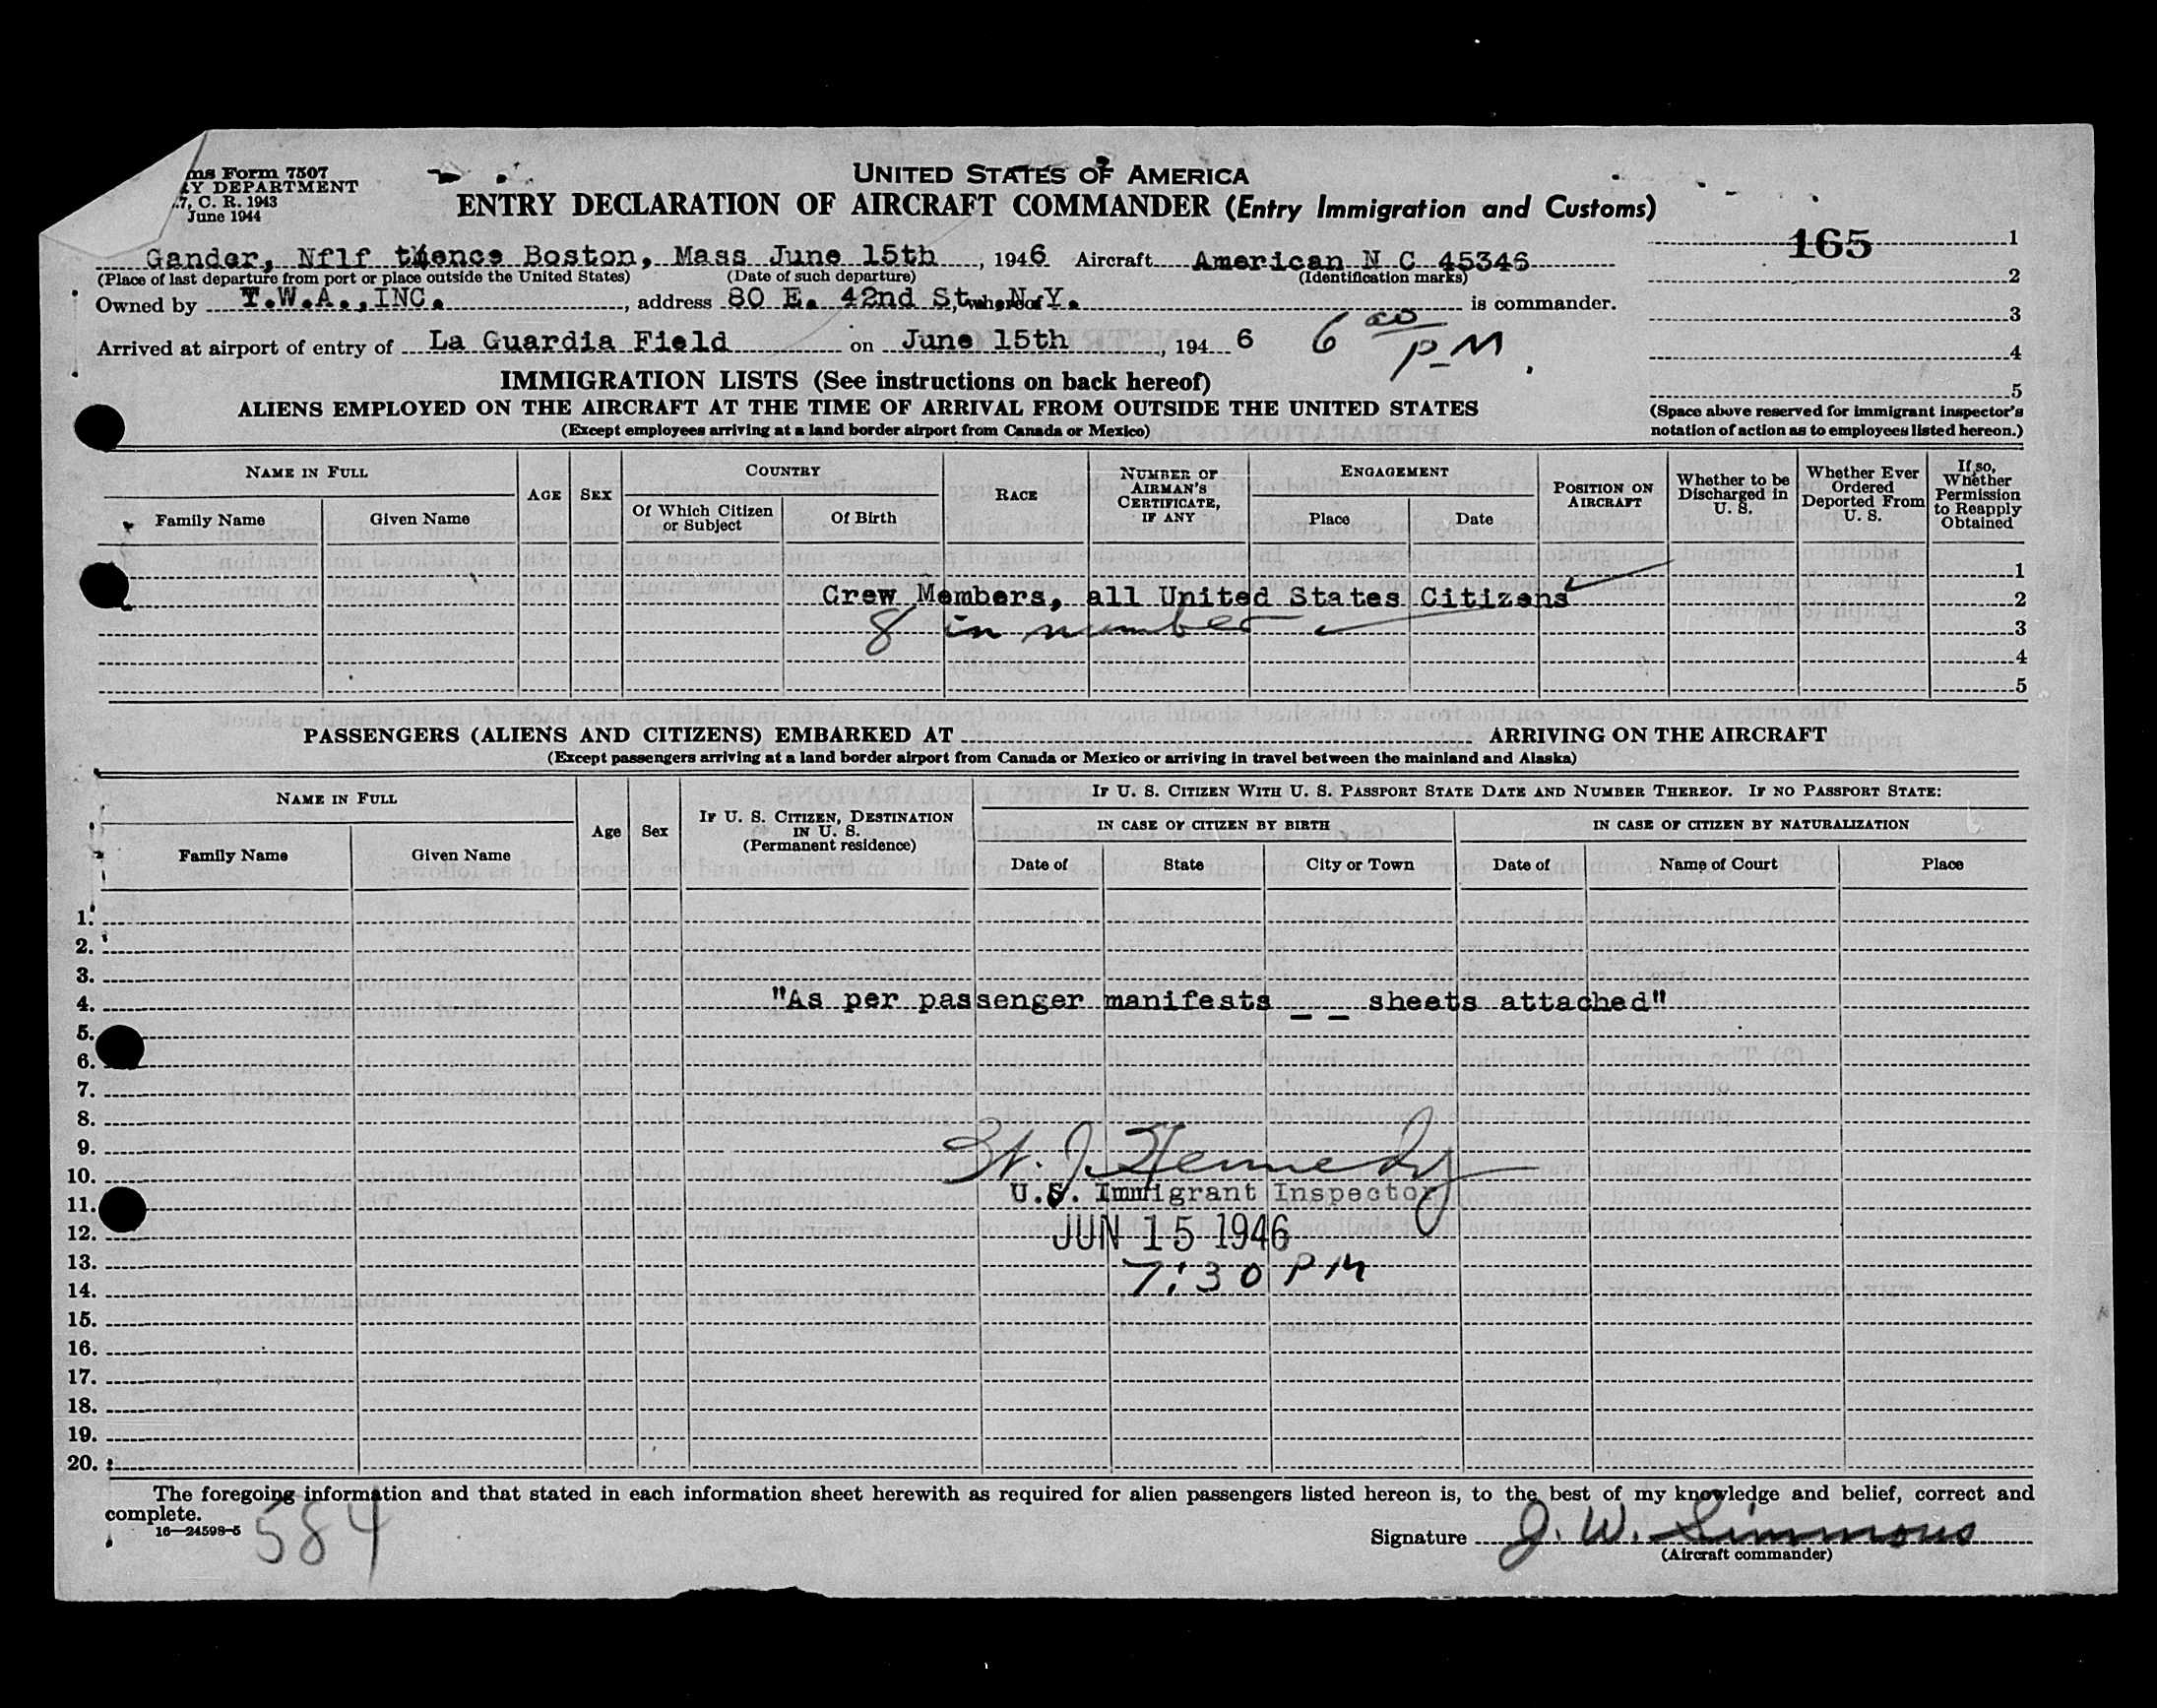 ms Form 7507
RY DEPARTMENT
7, C. R. 1943
June 1944
UNITED STATES OF AMERICA
ENTRY DECLARATION OF AIRCRAFT COMMANDER (Entry Immigration and Customs)
165
Gander, Nflf thence Boston, Mass June 15th, 1946 Aircraft American N C 45346
(Place of last departure from port or place outside the United States) (Date of such departure) (Identification marks)
Owned by T.W.A.,INC., address 80 E. 42nd St., N.Y. , whereof is commander.
Arrived at airport of entry of La Guardia Field on June 15th, 194 6 6 00 PM.
1
2
3
4
5
(Space above reserved for immigrant inspector's notation of action as to employees listed hereon.)
IMMIGRATION LISTS (See instructions on back hereof)
ALIENS EMPLOYED ON THE AIRCRAFT AT THE TIME OF ARRIVAL FROM OUTSIDE THE UNITED STATES
(Except employees arriving at a land border airport from Canada or Mexico)
NAME IN FULL
Family Name Given Name
AGE
SEX
COUNTRY
Of Which Citizen or Subject Of Birth
RACE
NUMBER OF AIRMAN'S CERTIFICATE, IF ANY
ENGAGEMENT
Place Date
POSITION ON AIRCRAFT
Whether to be Discharged in U. S.
Whether Ever Ordered Deported From U. S.
If so, Whether Permission to Reapply Obtained
1
Crew Members, all United States Citizens 2
8 in number 3
4
5
PASSENGERS (ALIENS AND CITIZENS) EMBARKED AT ARRIVING ON THE AIRCRAFT
(Except passengers arriving at a land border airport from Canada or Mexico or arriving in travel between the mainland and Alaska)
NAME IN FULL
Family Name Given Name
Age
Sex
IF U. S. CITIZEN, DESTINATION IN U. S.
(Permanent residence)
IF U. S. CITIZEN WITH U. S. PASSPORT STATE DATE AND NUMBER THEREOF. IF NO PASSPORT STATE:
IN CASE OF CITIZEN BY BIRTH
Date of State City or Town
IN CASE OF CITIZEN BY NATURALIZATION
Date of Name of Court Place
1.
2.
3.
4. "As per passenger manifests _ _ sheets attached"
5.
6.
7.
8.
9.
10. J. Kennedy
11. U.S. Immigrant Inspector
12. JUN 15 1946
13. 7:30 PM
14.
15.
16.
17.
18.
19.
20.
The foregoing information and that stated in each information sheet herewith as required for alien passengers listed hereon is, to the best of my knowledge and belief, correct and
complete.
16—24598-5
584
Signature J. W. Simmons
(Aircraft commander)